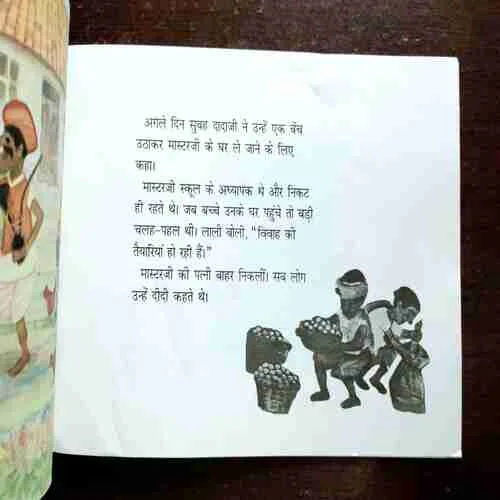 अगले दिन सुबह दादाजी ने उन्हें एक बेंच
उठाकर मास्टरजी के घर ले जाने के लिए
कहा।
मास्टरजी स्कूल के अध्यापक थे और निकट
ही रहते थे। जब बच्चे उनके घर पहुंचे तो बड़ी
चलह-पहल थी। लाली बोली, “विवाह की
तैयारियां हो रही हैं।”
मास्टरजी की पत्नी बाहर निकलीं। सब लोग
उन्हें दीदी कहते थे।